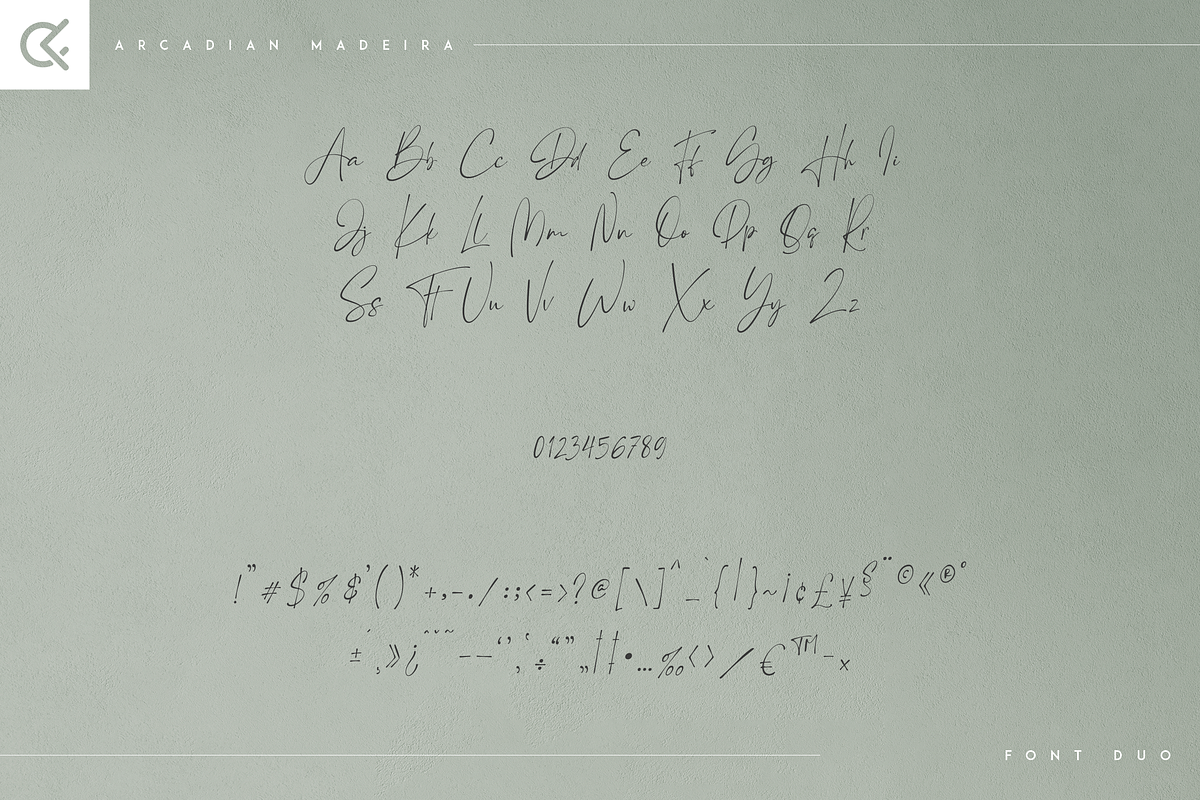 ARCADIAN MADEIRA
Aa Bb Cc Dd Ee Ff Gg Hh Ii
Jj Kk Ll Mm Nn Oo Pp Qq Rr
Ss Tt Uu Vv Ww Xx Yy Zz
0123456789
!"#$%&'()*+,-./:;<=>?@[\]^_`{|}~¡¢£¥§¨©«®°
±´¸»¿ˆˇ˜–—‘’‚‛÷“”„†‡•…‰‹›⁄€™−×
FONT DUO